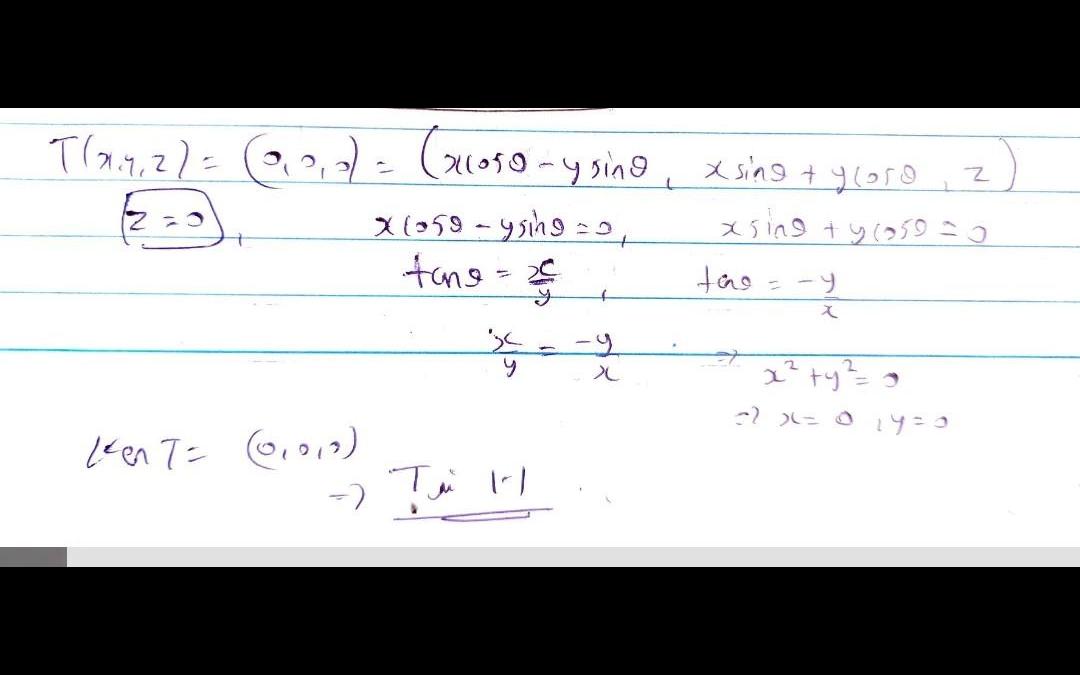 T(x,y,z) = (0,0,0) = (x cosθ - y sinθ, x sinθ + y cosθ, z)
z = 0, x cosθ - y sinθ = 0, x sinθ + y cosθ = 0
tanθ = x/y, tanθ = -y/x
x/y = -y/x ⇒ x² + y² = 0
⇒ x = 0, y = 0
Ker T = (0,0,0)
⇒ T is 1-1